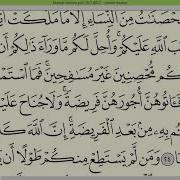 مُحْصَنَٰتُ مِنَ ٱلنِّسَآءِ إِلَّا مَا مَلَكَتْ أَيْ
ـبَ ٱللَّهِ عَلَيْكُمْ ۚ وَأُحِلَّ لَكُم مَّا وَرَآءَ ذَٰلِكُمْ أَن
ـكُم مُّحْصِنِينَ غَيْرَ مُسَٰفِحِينَ ۚ فَمَا ٱسْتَمْ
فَـَٔاتُوهُنَّ أُجُورَهُنَّ فَرِيضَةً ۚ وَلَا جُنَاحَ عَلَيْـ
ـتُم بِهِۦ مِنۢ بَعْدِ ٱلْفَرِيضَةِ ۚ إِنَّ ٱللَّهَ كَا
٢٤ وَمَن لَّمْ يَسْتَطِعْ مِنكُمْ طَوْلًا أَ